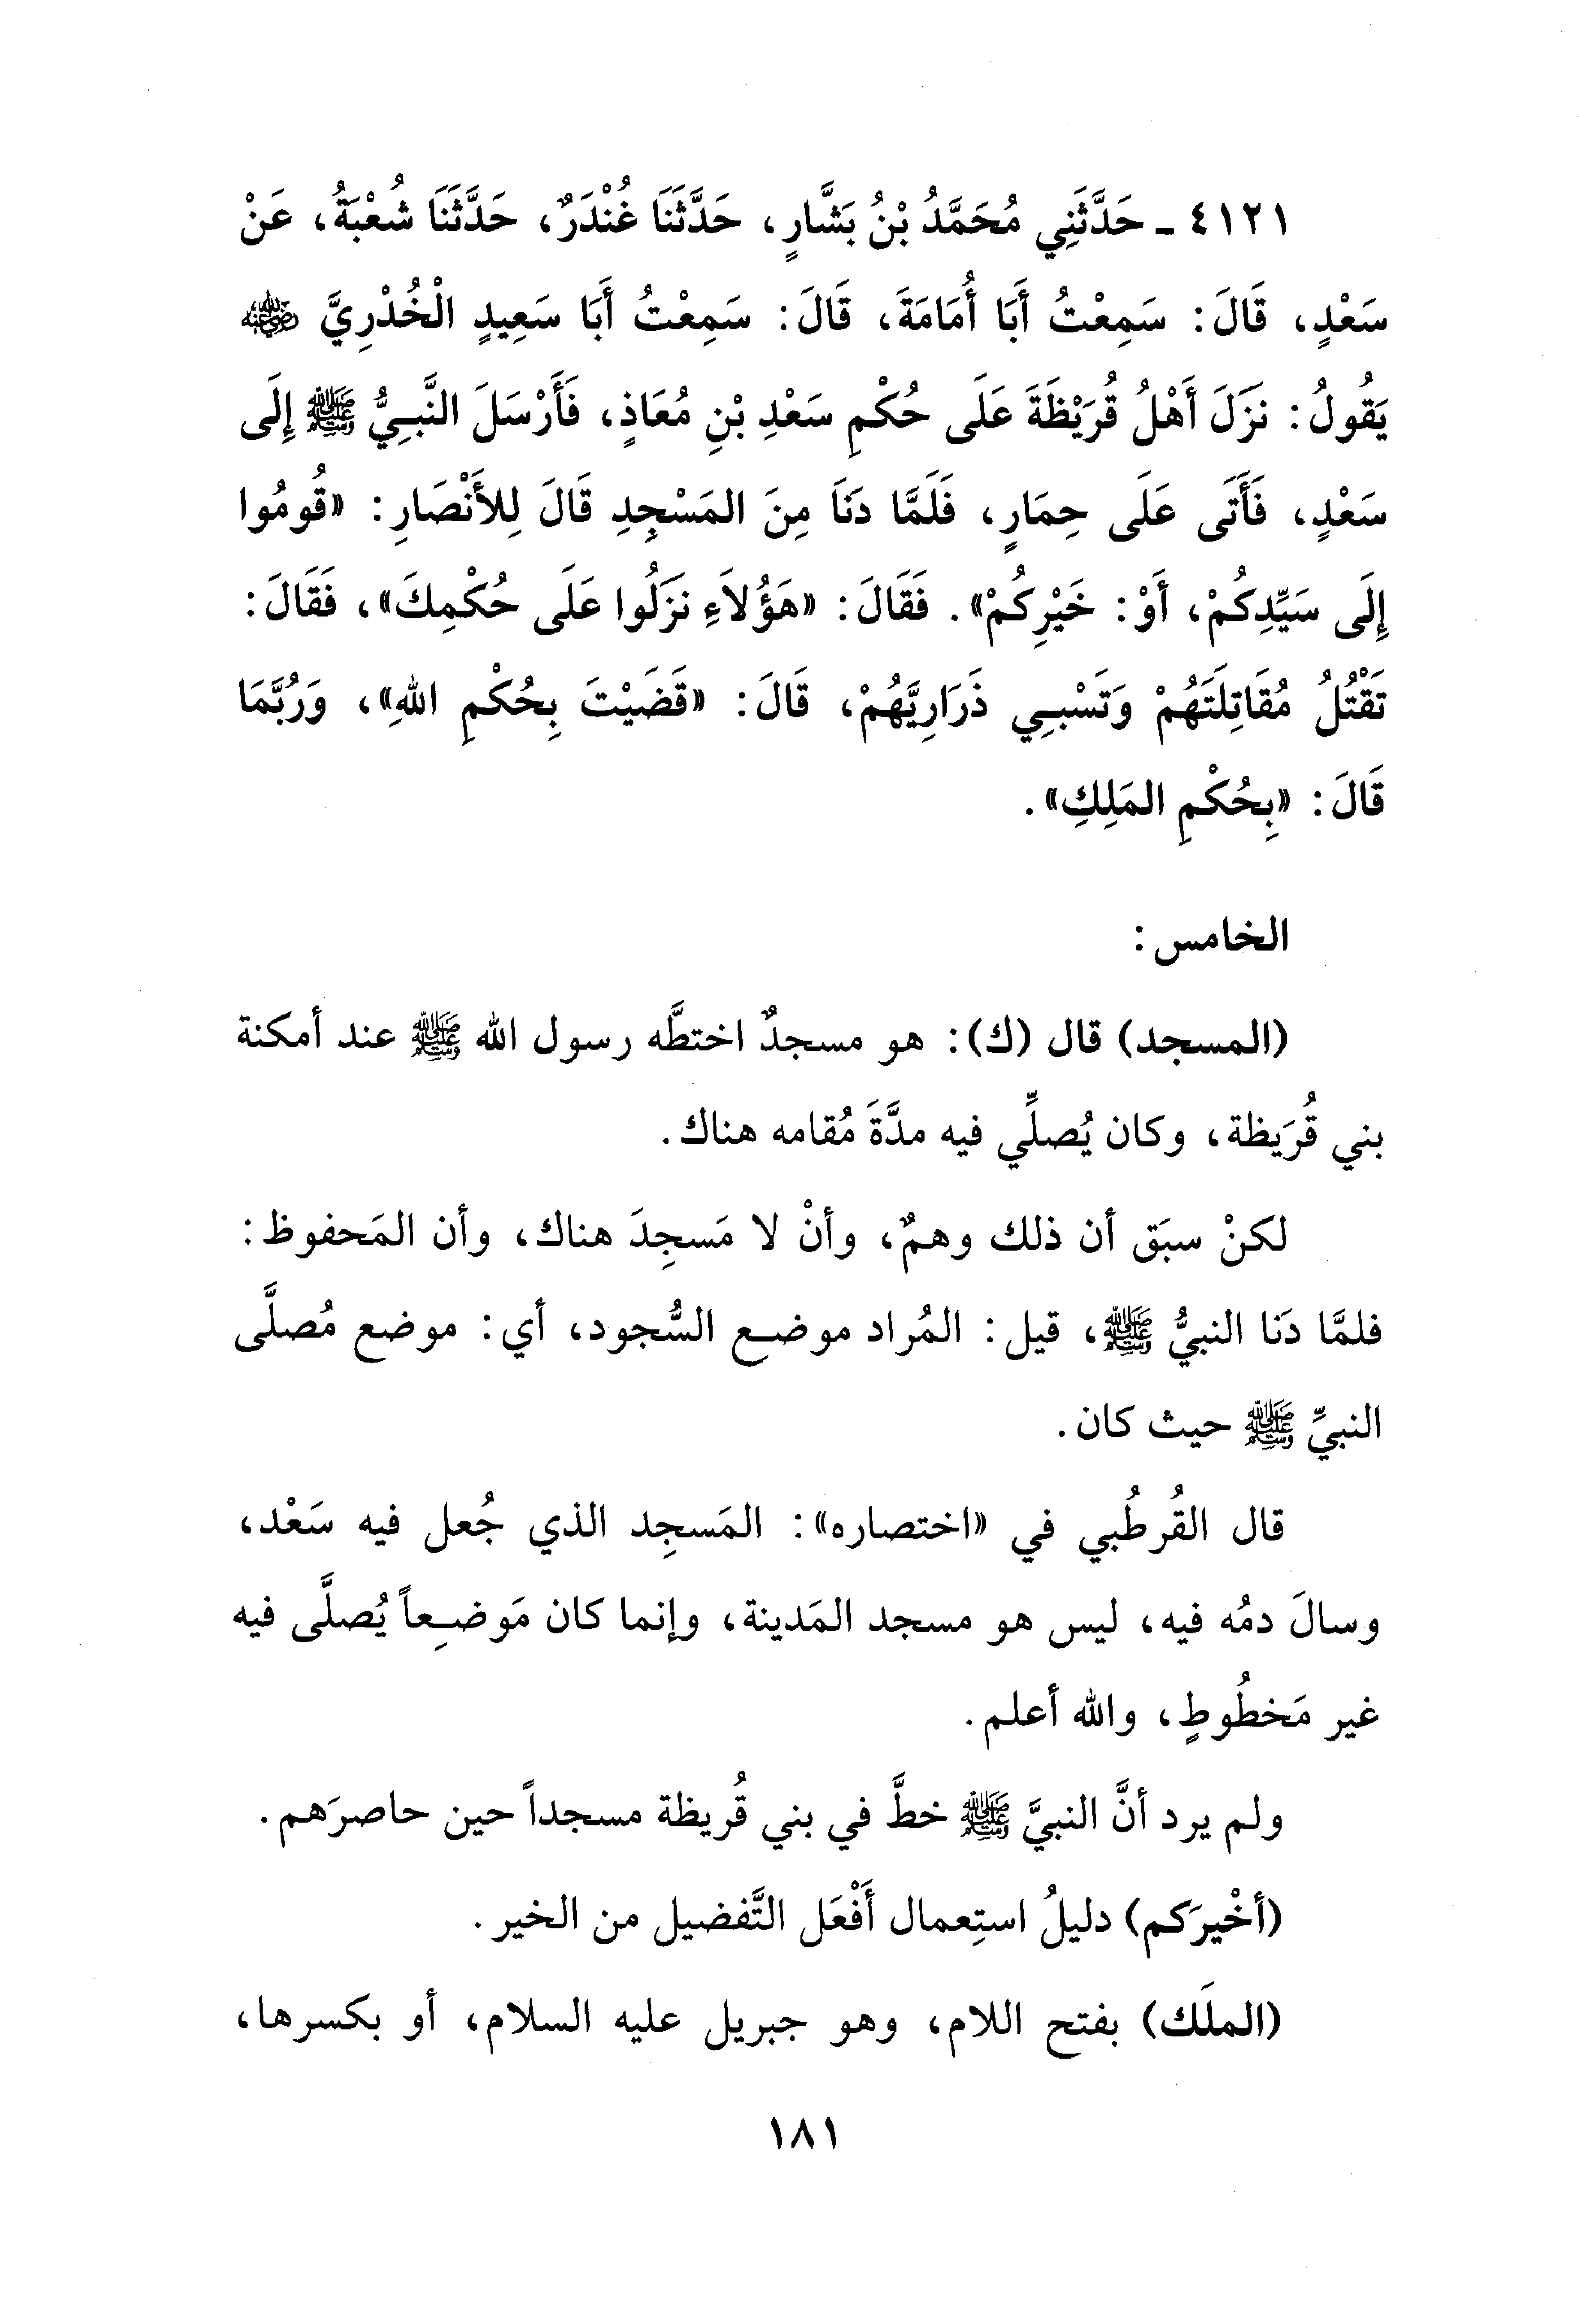 ٤١٢١ ـ حَدَّثَنِي مُحَمَّدُ بْنُ بَشَّارٍ، حَدَّثَنَا غُنْدَرٌ، حَدَّثَنَا شُعْبَةُ، عَنْ
سَعْدٍ، قَالَ: سَمِعْتُ أَبَا أُمَامَةَ، قَالَ: سَمِعْتُ أَبَا سَعِيدٍ الْخُدْرِيَّ رضي الله عنه
يَقُولُ: نَزَلَ أَهْلُ قُرَيْظَةَ عَلَى حُكْمِ سَعْدِ بْنِ مُعَاذٍ، فَأَرْسَلَ النَّبِيُّ ﷺ إِلَى
سَعْدٍ، فَأَتَى عَلَى حِمَارٍ، فَلَمَّا دَنَا مِنَ المَسْجِدِ قَالَ لِلأَنْصَارِ: «قُومُوا
إِلَى سَيِّدِكُمْ، أَوْ: خَيْرِكُمْ». فَقَالَ: «هَؤُلاَءِ نَزَلُوا عَلَى حُكْمِكَ»، فَقَالَ:
تَقْتُلُ مُقَاتِلَتَهُمْ وَتَسْبِي ذَرَارِيَّهُمْ، قَالَ: «قَضَيْتَ بِحُكْمِ اللهِ»، وَرُبَّمَا
قَالَ: «بِحُكْمِ المَلِكِ».
الخامس:
(المسجد) قال (ك): هو مسجدٌ اختطَّه رسول الله ﷺ عند أمكنة
بني قُرَيظة، وكان يُصلِّي فيه مدَّةَ مُقامه هناك.
لكنْ سبَق أن ذلك وهمٌ، وأنْ لا مَسجِدَ هناك، وأن المَحفوظ:
فلمَّا دَنا النبيُّ ﷺ، قيل: المُراد موضع السُّجود، أي: موضع مُصلَّى
النبيِّ ﷺ حيث كان.
قال القُرطُبي في «اختصاره»: المَسجِد الذي جُعل فيه سَعْد،
وسالَ دمُه فيه، ليس هو مسجد المَدينة، وإنما كان مَوضِعاً يُصلَّى فيه
غير مَخطُوطٍ، والله أعلم.
ولم يرد أنَّ النبيَّ ﷺ خطَّ في بني قُريظة مسجداً حين حاصرَهم.
(أخْيرَكم) دليلُ استِعمال أَفْعَل التَّفضيل من الخير.
(الملَك) بفتح اللام، وهو جبريل عليه السلام، أو بكسرها،
١٨١